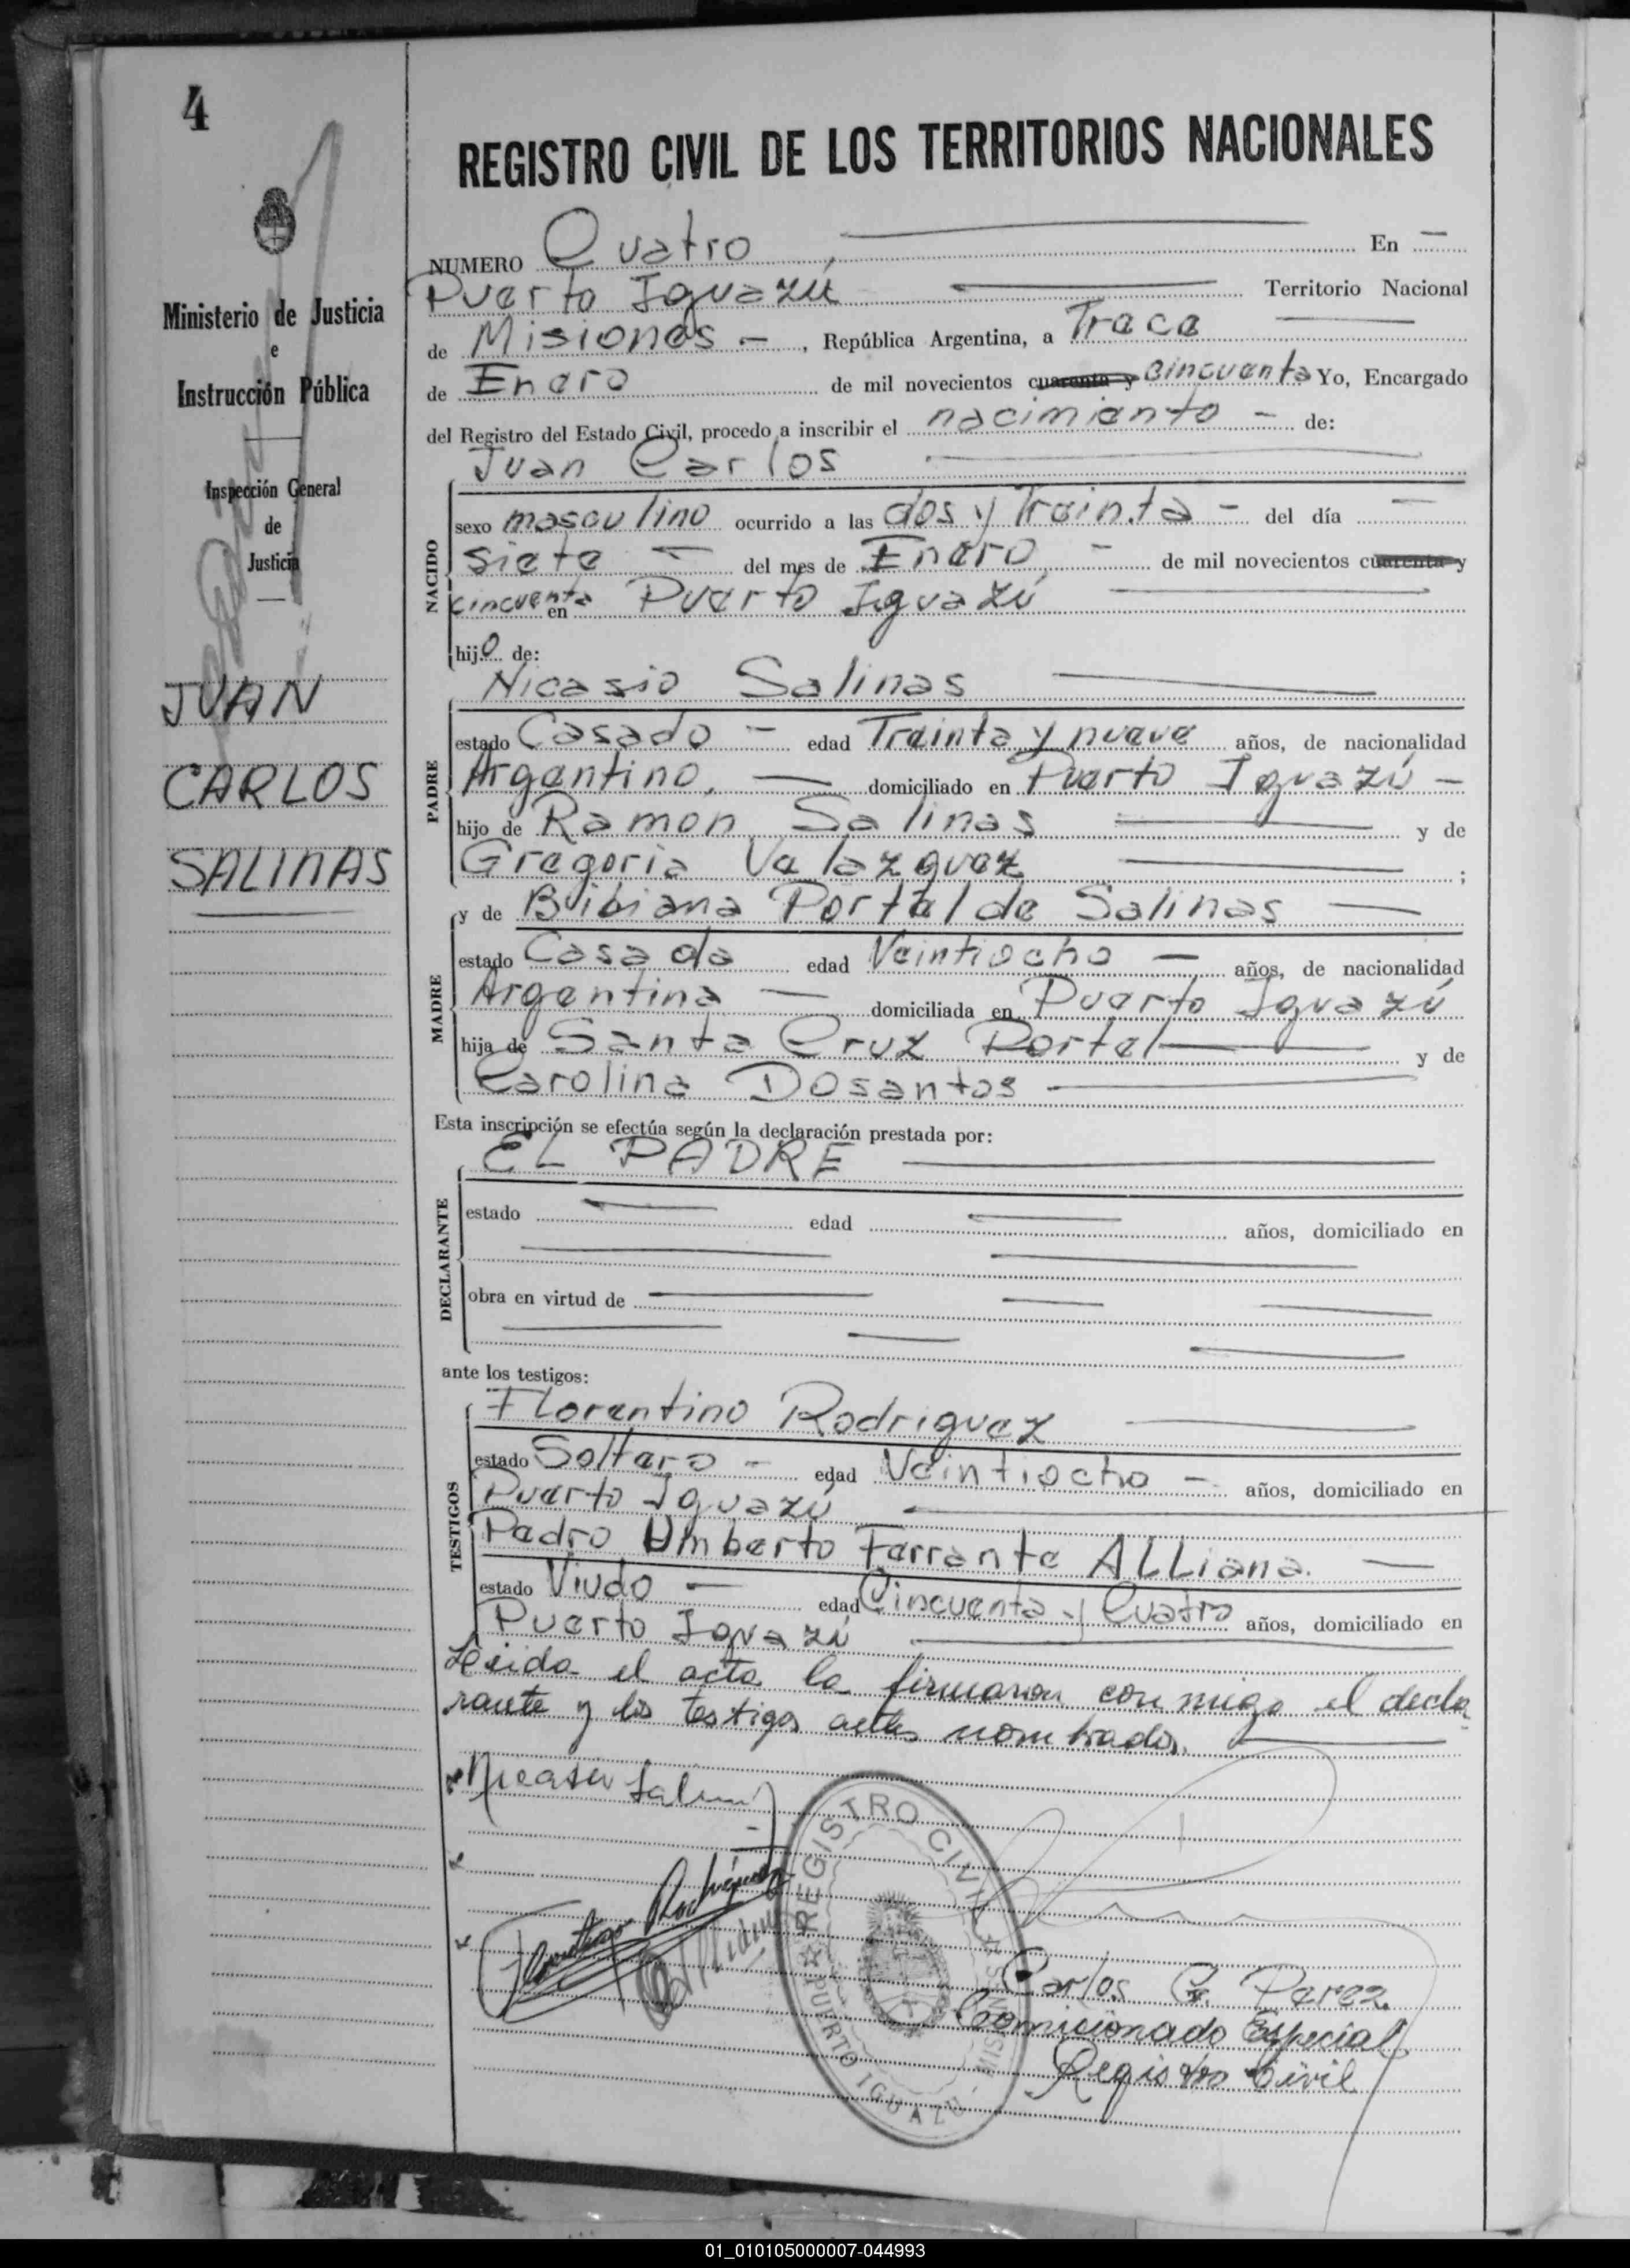 4
REGISTRO CIVIL DE LOS TERRITORIOS NACIONALES
Ministerio de Justicia
e
Instrucción Pública
Inspección General
de
Justicia
JUAN
CARLOS
SALINAS
NUMERO Cuatro En
Puerto Iguazú Territorio Nacional
de Misiones - , República Argentina, a Trece
de Enero de mil novecientos cuarenta y cincuenta Yo, Encargado
del Registro del Estado Civil, procedo a inscribir el nacimiento - de:
Juan Carlos
NACIDO
sexo masculino ocurrido a las dos y Treinta - del día
siete - del mes de Enero - de mil novecientos cuarenta y
cincuenta en Puerto Iguazú
hijo de:
Nicasio Salinas
PADRE
estado Casado - edad Treinta y nueve años, de nacionalidad
Argentino, domiciliado en Puerto Iguazú -
hijo de Ramon Salinas y de
Gregoria Velazquez ;
y de Bibiana Portel de Salinas
MADRE
estado Casada edad Veintiocho - años, de nacionalidad
Argentina - domiciliada en Puerto Iguazú
hija de Santa Cruz Portel y de
Carolina Dosantos
Esta inscripción se efectúa según la declaración prestada por:
EL PADRE
DECLARANTE
estado edad años, domiciliado en
obra en virtud de
ante los testigos:
TESTIGOS
Florentino Rodriguez
estado Soltero - edad Veintiocho - años, domiciliado en
Puerto Iguazú
Pedro Umberto Ferrante ALLiana.
estado Viudo - edad Cincuenta y Cuatro años, domiciliado en
Puerto Iguazú
Leida el acta la firmaron conmigo el decla
rante y los testigos antes nombrados.
Nicasio Salinas
Florentino Rodríguez
REGISTRO CIVIL
PUERTO IGUAZÚ
Carlos G. Perez.
Comicionado Especial
Registro Civil
01_010105000007-044993